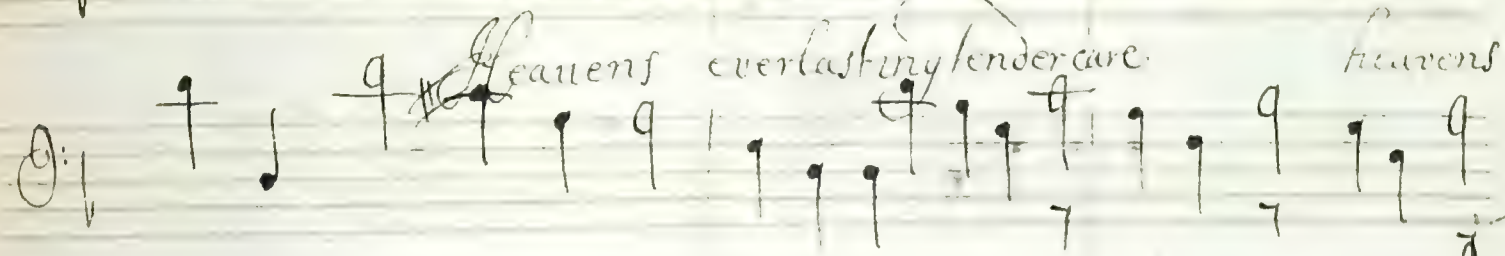 Heauens everlasting tender care. heavens
7 7 7